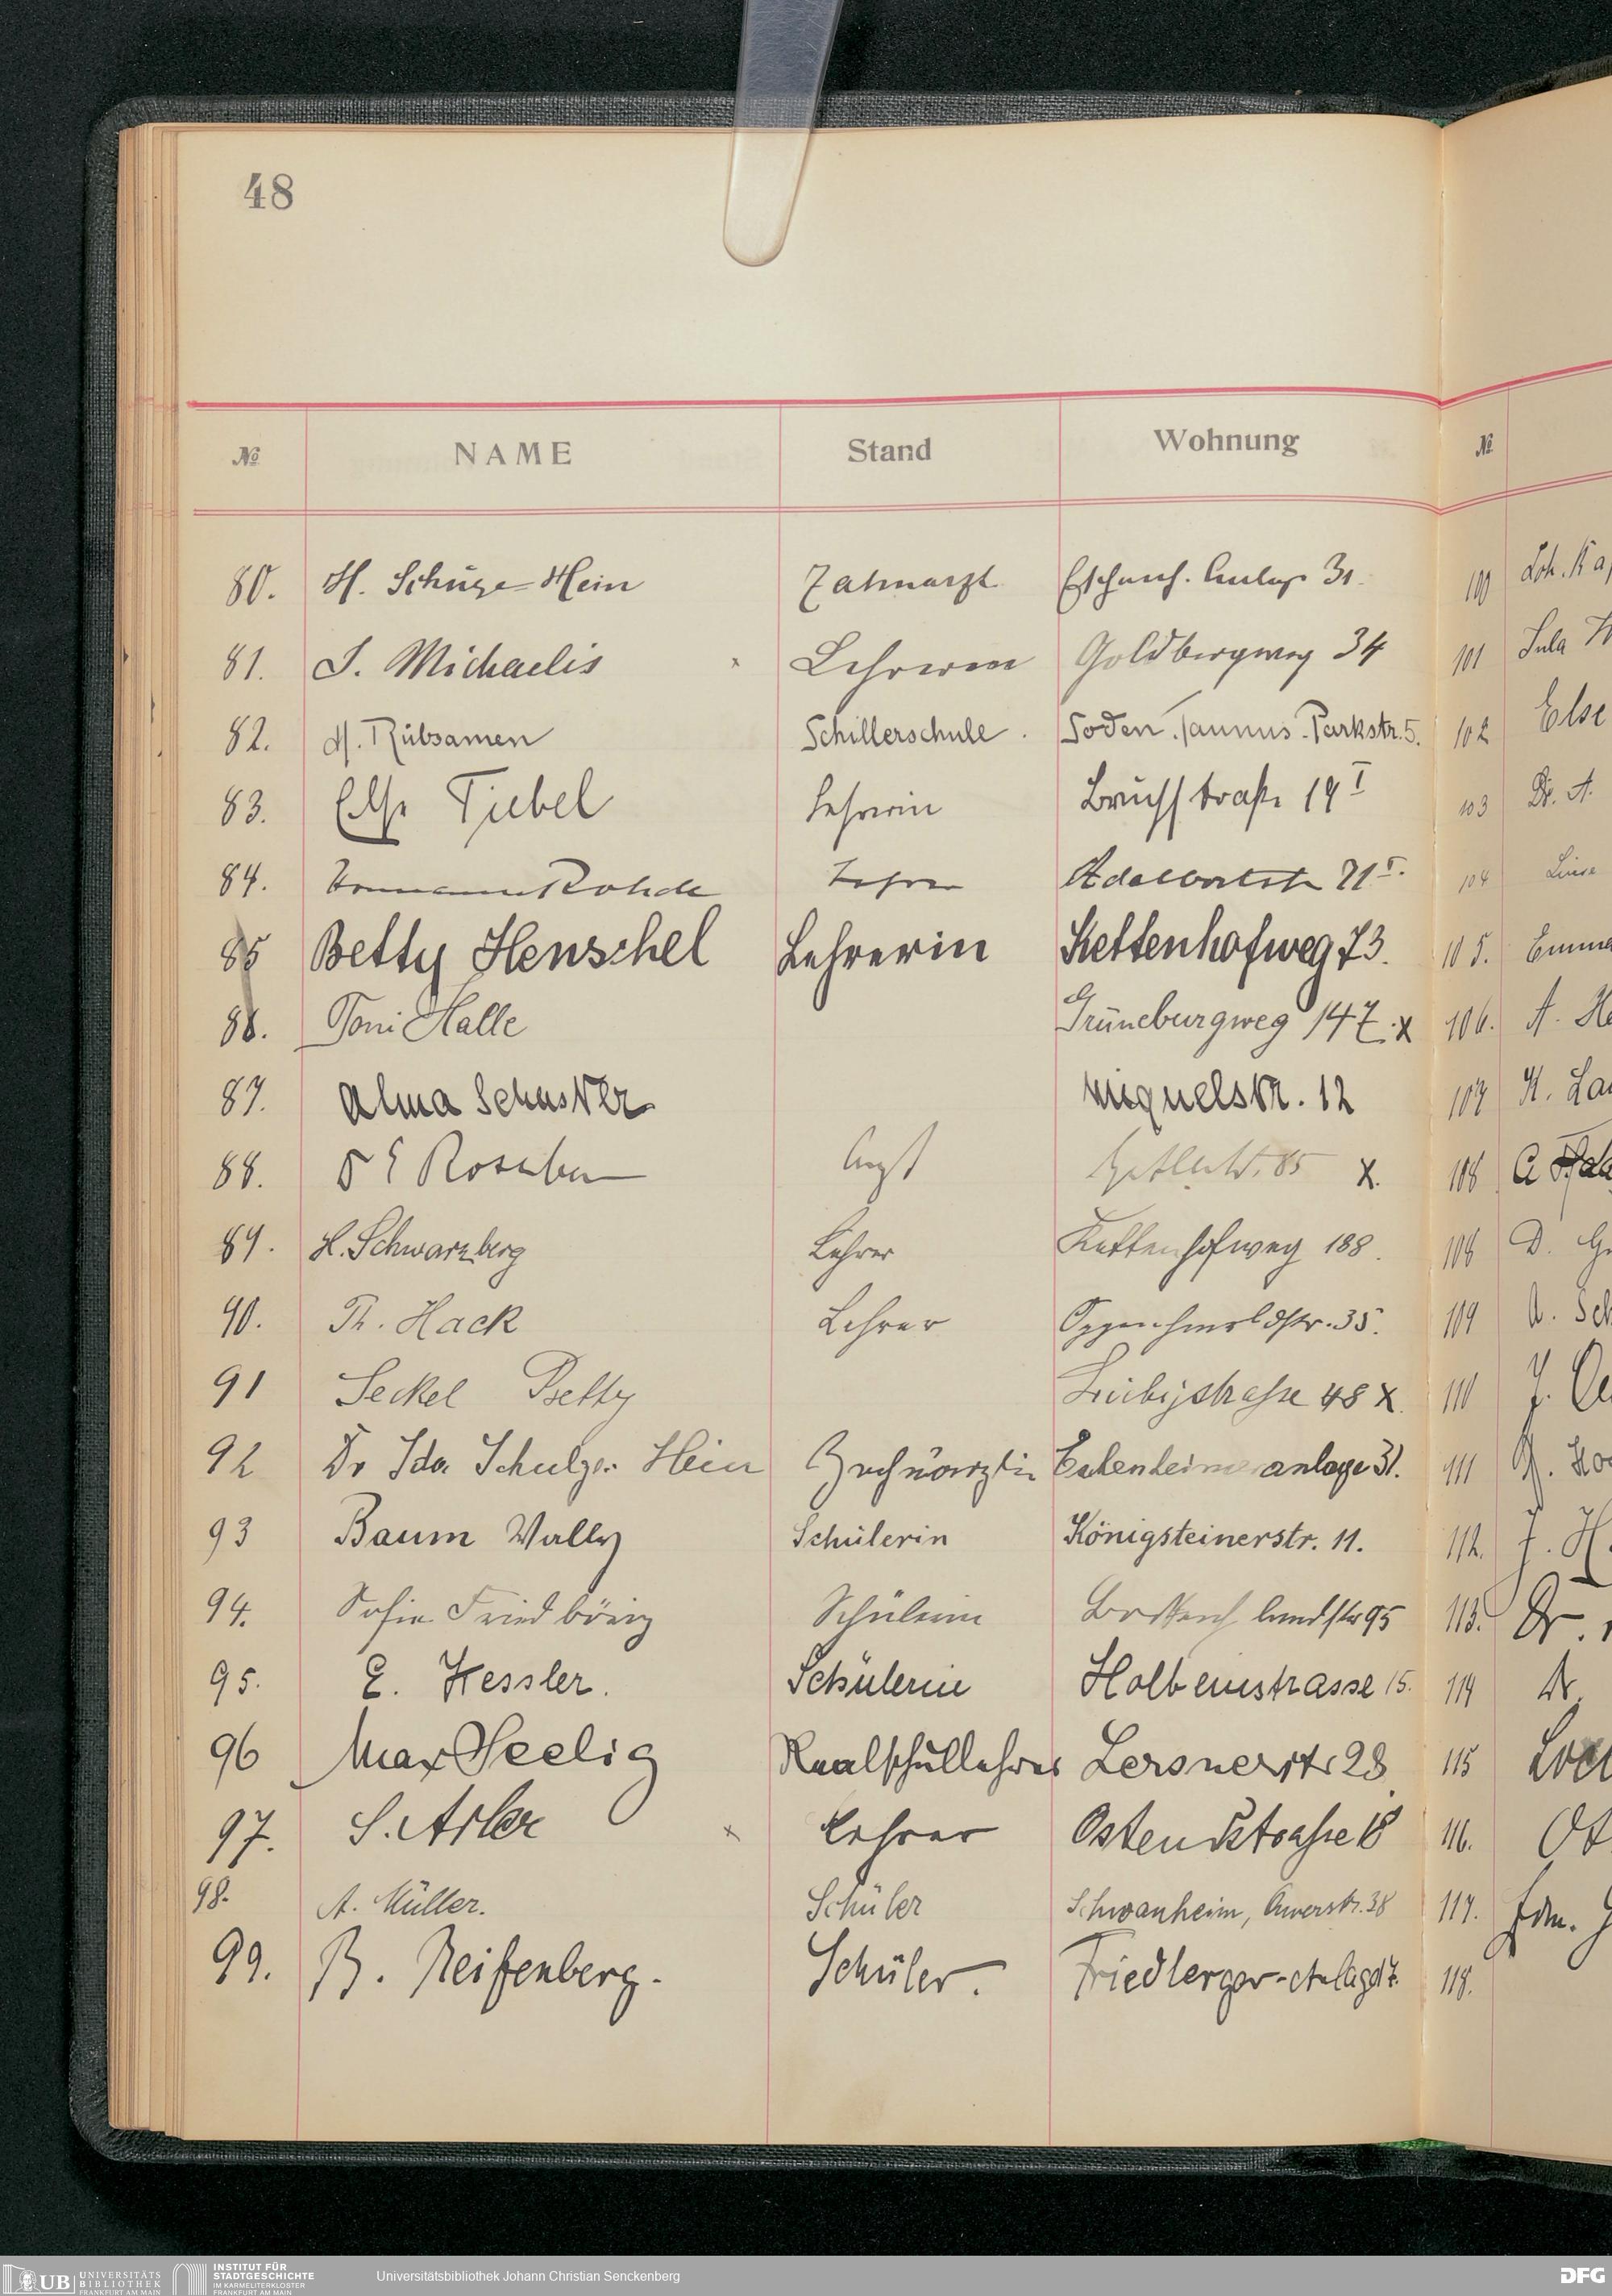 48
№ NAME Stand Wohnung №
80. H. Schulze-Hein Zahnarzt Eschersh. Anlage 31.
81. J. Michaelis Lehrerin Goldbergweg 34
82. H. Rübsamen Schillerschule. Soden. Taunus. Parkstr. 5.
83. Else Tiebel Lehrerin Bruchstraße 19 I
84. Rohde Lehrer Adalbertstr 71 I.
85 Betty Henschel Lehrerin Kettenhofweg 73.
86. Toni Halle Grüneburgweg 147. x
87. Alma Schuster Miquelstr. 12
88. Arzt 85 X.
89. H. Schwarzberg Lehrer Kettenhofweg 188.
90. Th. Hack Lehrer Oppenheimer Ldstr. 35.
91 Seckel Betty Liebigstrasse 48 X.
92 Dr Ida Schulze-Hein Zahnärztin anlage 31.
93 Baum Wally Schülerin Königsteinerstr. 11.
94. Sofie Schülerin landstr 95
95. E. Kessler. Schülerin Holbeinstrasse 15.
96 Max Seelig Realschullehrer Lersnerstr 23
97. S. Adler x Lehrer Ostendstraße 18
98. A. Müller. Schüler Schwanheim, 38
99. B. Reifenberg. Schüler. Friedberger-Anlage 17.
100
101
102 Else
103 Dr. A.
104
105.
106. A.
107 K.
108
108 D.
109
110
111
112.
113. Dr.
114 Dr.
115
116.
117. Edm.
118.
UB UNIVERSITÄTS
BIBLIOTHEK
FRANKFURT AM MAIN
INSTITUT FÜR
STADTGESCHICHTE
IM KARMELITERKLOSTER
FRANKFURT AM MAIN
Universitätsbibliothek Johann Christian Senckenberg
DFG